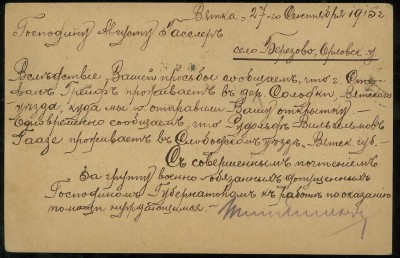 Вятка, 27-го Сентября 1915 г.
Господину Августу Гасслеръ
село Березово, Орловск. у.
Вслѣдствіе Вашей просьбы сообщаемъ, что г. Сте-
фанъ Грейфъ проживаетъ въ дер. Солодки, Вятскаго
уѣзда, куда мы и отправили Вашу открытку.–
Одновременно сообщаемъ, что Рудольфъ Вильгельмовъ
Гаазе проживаетъ въ Слободскомъ уѣздѣ, Вятск. губ.–
Съ совершеннымъ почтеніемъ
За группу военно-обязанныхъ допущенныхъ
Господиномъ Губернаторомъ къ работѣ по оказанію
помощи нуждающимся.–